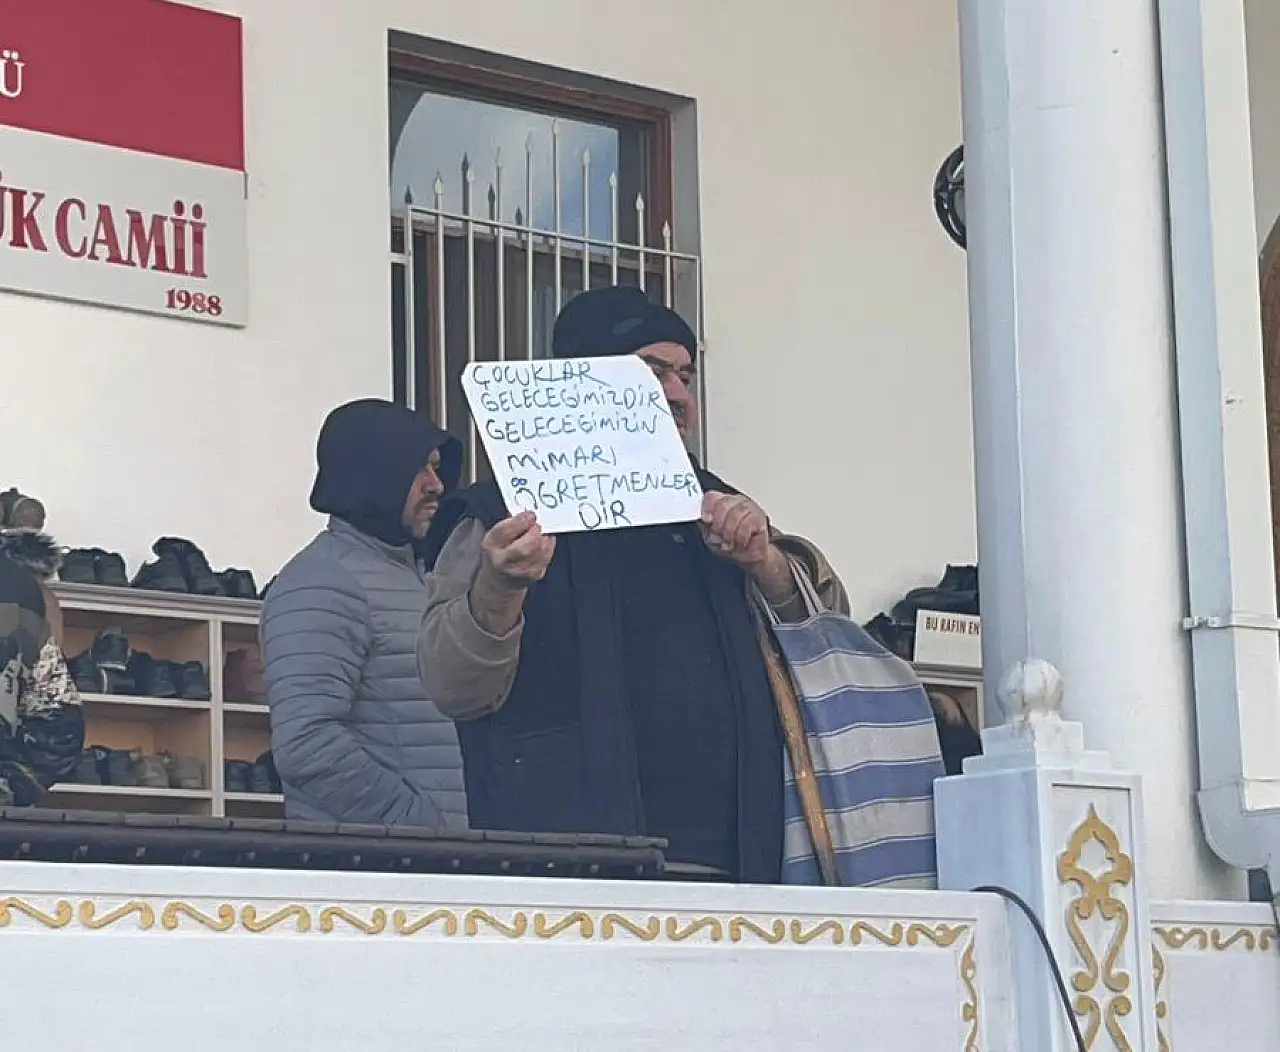 Ü
ÜK CAMİİ
1988
ÇOCUKLAR
GELECEĞİMİZDİR
GELECEĞİMİZİN
MİMARI
ÖĞRETMENLER
DİR
BU RAFIN EN